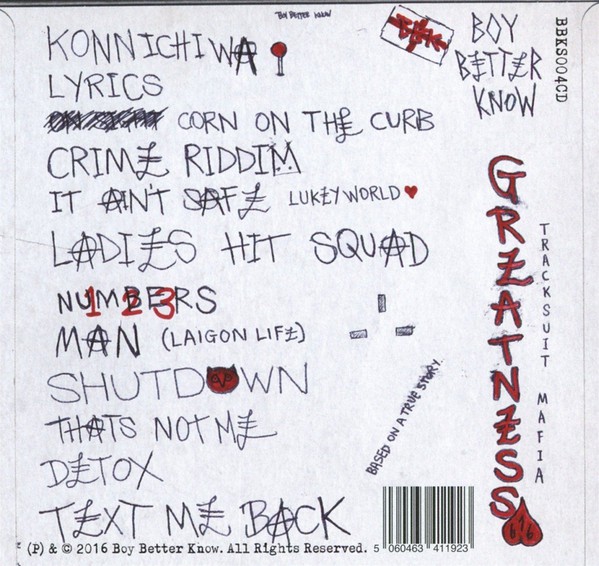 BOY BETTER KNOW
KONNICHIWA
LYRICS
CORN ON THE CURB
CRIME RIDDIM
IT AIN'T SAFE LUKEYWORLD
LADIES HIT SQUAD
NUMBERS
123
MAN (LAIGON LIFE)
SHUTDOWN
THATS NOT ME
DETOX
TEXT ME BACK
BASED ON A TRUE STORY.
BOY
BETTER
KNOW
BBKS004CD
GREATNESS
616
TRACKSUIT MAFIA
(P) & © 2016 Boy Better Know. All Rights Reserved.
5 060463 411923